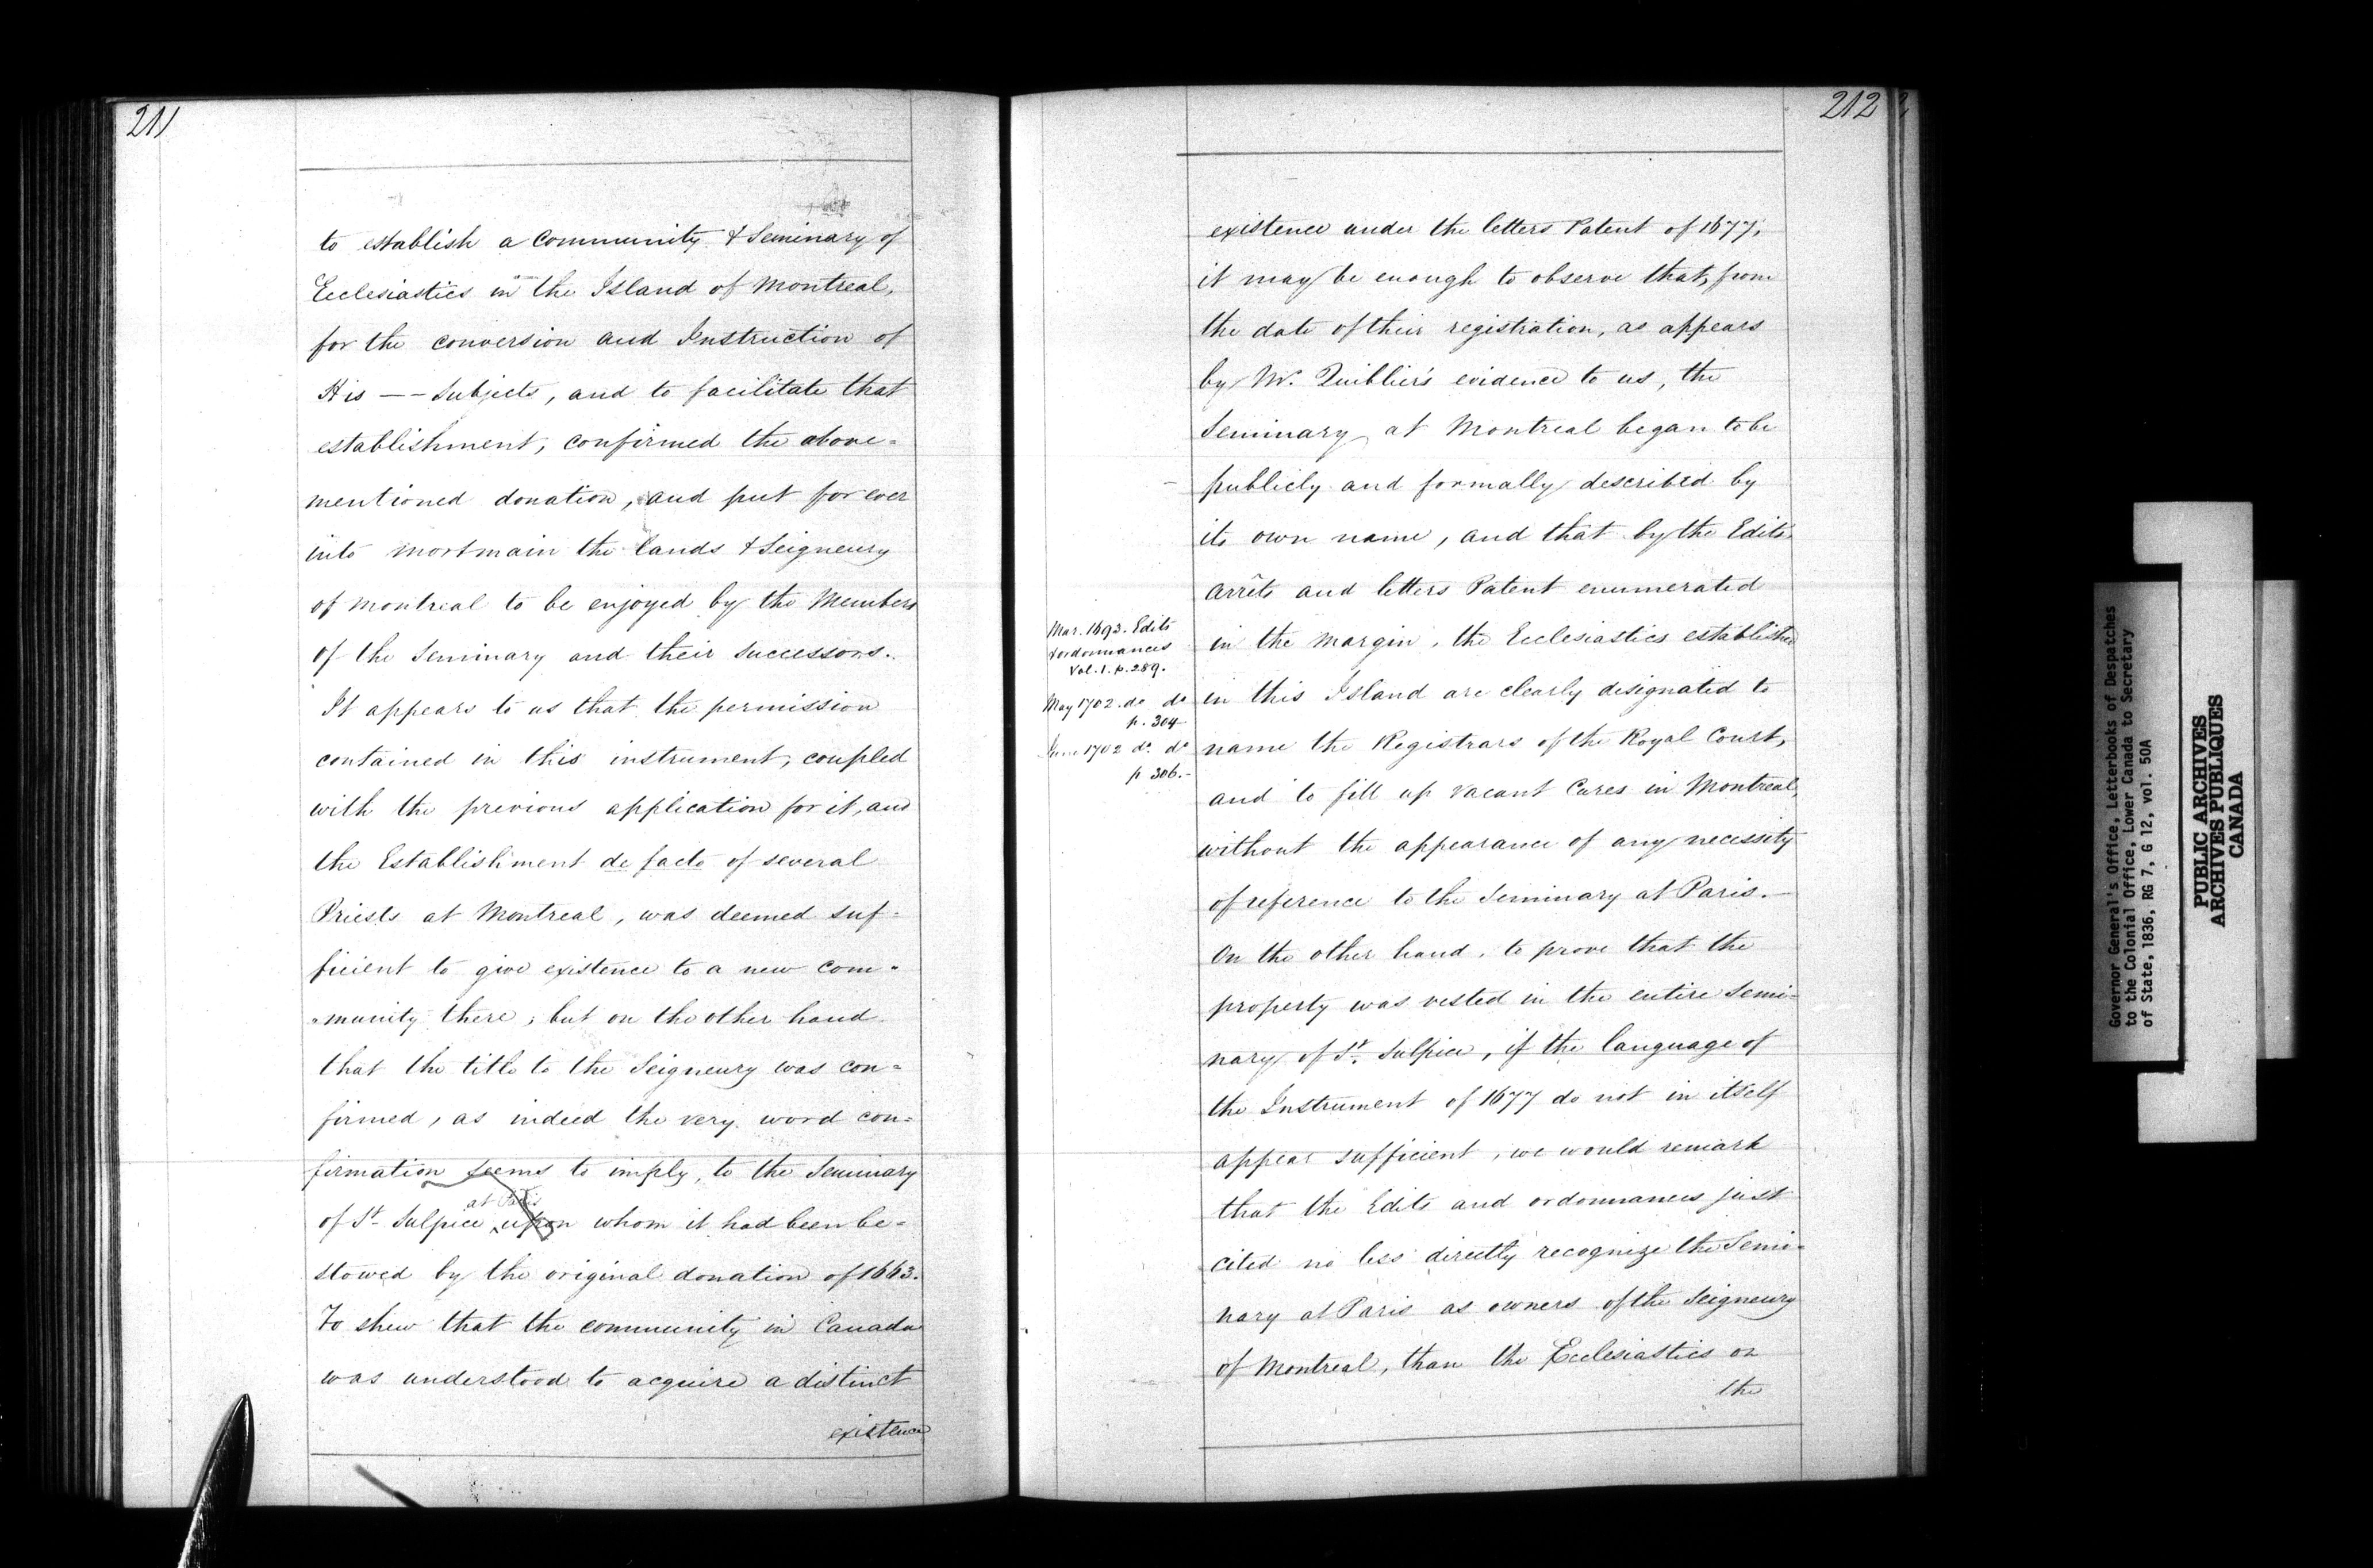 211
to establish a Community & Seminary of
Ecclesiastics in the Island of Montreal,
for the conversion and Instruction of
His —— Subjects, and to facilitate that
establishment, confirmed the above=
mentioned donation, and put for ever
into mortmain the lands & Seigneury
of Montreal to be enjoyed by the Members
of the Seminary and their successors.
It appears to us that the permission
contained in this instrument, coupled
with the previous application for it, and
the Establishment de facto of several
Priests at Montreal, was deemed suf=
ficient to give existence to a new com=
=munity there; but on the other hand
that the title to the Seigneury was con=
firmed, as indeed the very word con=
firmation seems to imply, to the Seminary
at Paris
of St. Sulpice upon whom it had been be=
stowed by the original donation of 1663.
To shew that the community in Canada
was understood to acquire a distinct
existence
212
existence under the letters Patent of 1677,
it may be enough to observe that, from
the date of their registration, as appears
by Mr. Quiblier's evidence to us, the
Seminary at Montreal began to be
publicly and formally described by
its own name, and that by the Edits
Arrêts and letters Patent enumerated
in the margin, the Ecclesiastics established
in this Island are clearly designated to
name the Registrars of the Royal Court,
and to fill up vacant Cures in Montreal,
without the appearance of any necessity
of reference to the Seminary at Paris.—
On the other hand, to prove that the
property was vested in the entire Semi=
nary of St. Sulpice, if the language of
the Instrument of 1677 do not in itself
appear sufficient, we would remark
that the Edits and ordonnances just
cited no less directly recognize the Semi=
nary at Paris as owners of the Seigneury
of Montreal, than the Ecclesiastics on
the
Mar. 1693. Edits
& ordonnances
Vol. 1. p. 289.
May 1702. do do
p. 304
June 1702 do. do
p 306.-
Governor General's Office, Letterbooks of Despatches
to the Colonial Office, Lower Canada to Secretary
of State, 1836, RG 7, G 12, vol. 50A
PUBLIC ARCHIVES
ARCHIVES PUBLIQUES
CANADA